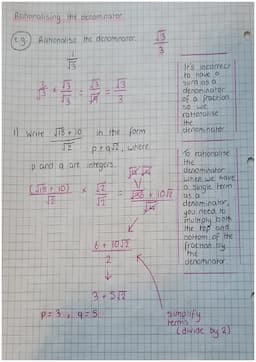 Rationalising the denominator
e.g. Rationalise the denominator.
1/√3
√3/3
1/√3 × √3/√3 = √3/√9 = √3/3
It's incorrect
to have a
surd as a
denominator
of a fraction
so we
rationalise
the
denominator
1) Write (√18 + 10)/√2 in the form
p + q√2, where
p and q are integers.
(√18 + 10)/√2 × √2/√2 = (√36 + 10√2)/√4
(6 + 10√2)/2
3 + 5√2
p = 3, q = 5
To rationalise
the
denominator
when we have
a single term
as a
denominator,
you need to
multiply both
the top and
bottom of the
fraction by
the
denominator
simplify
terms
(divide by 2)